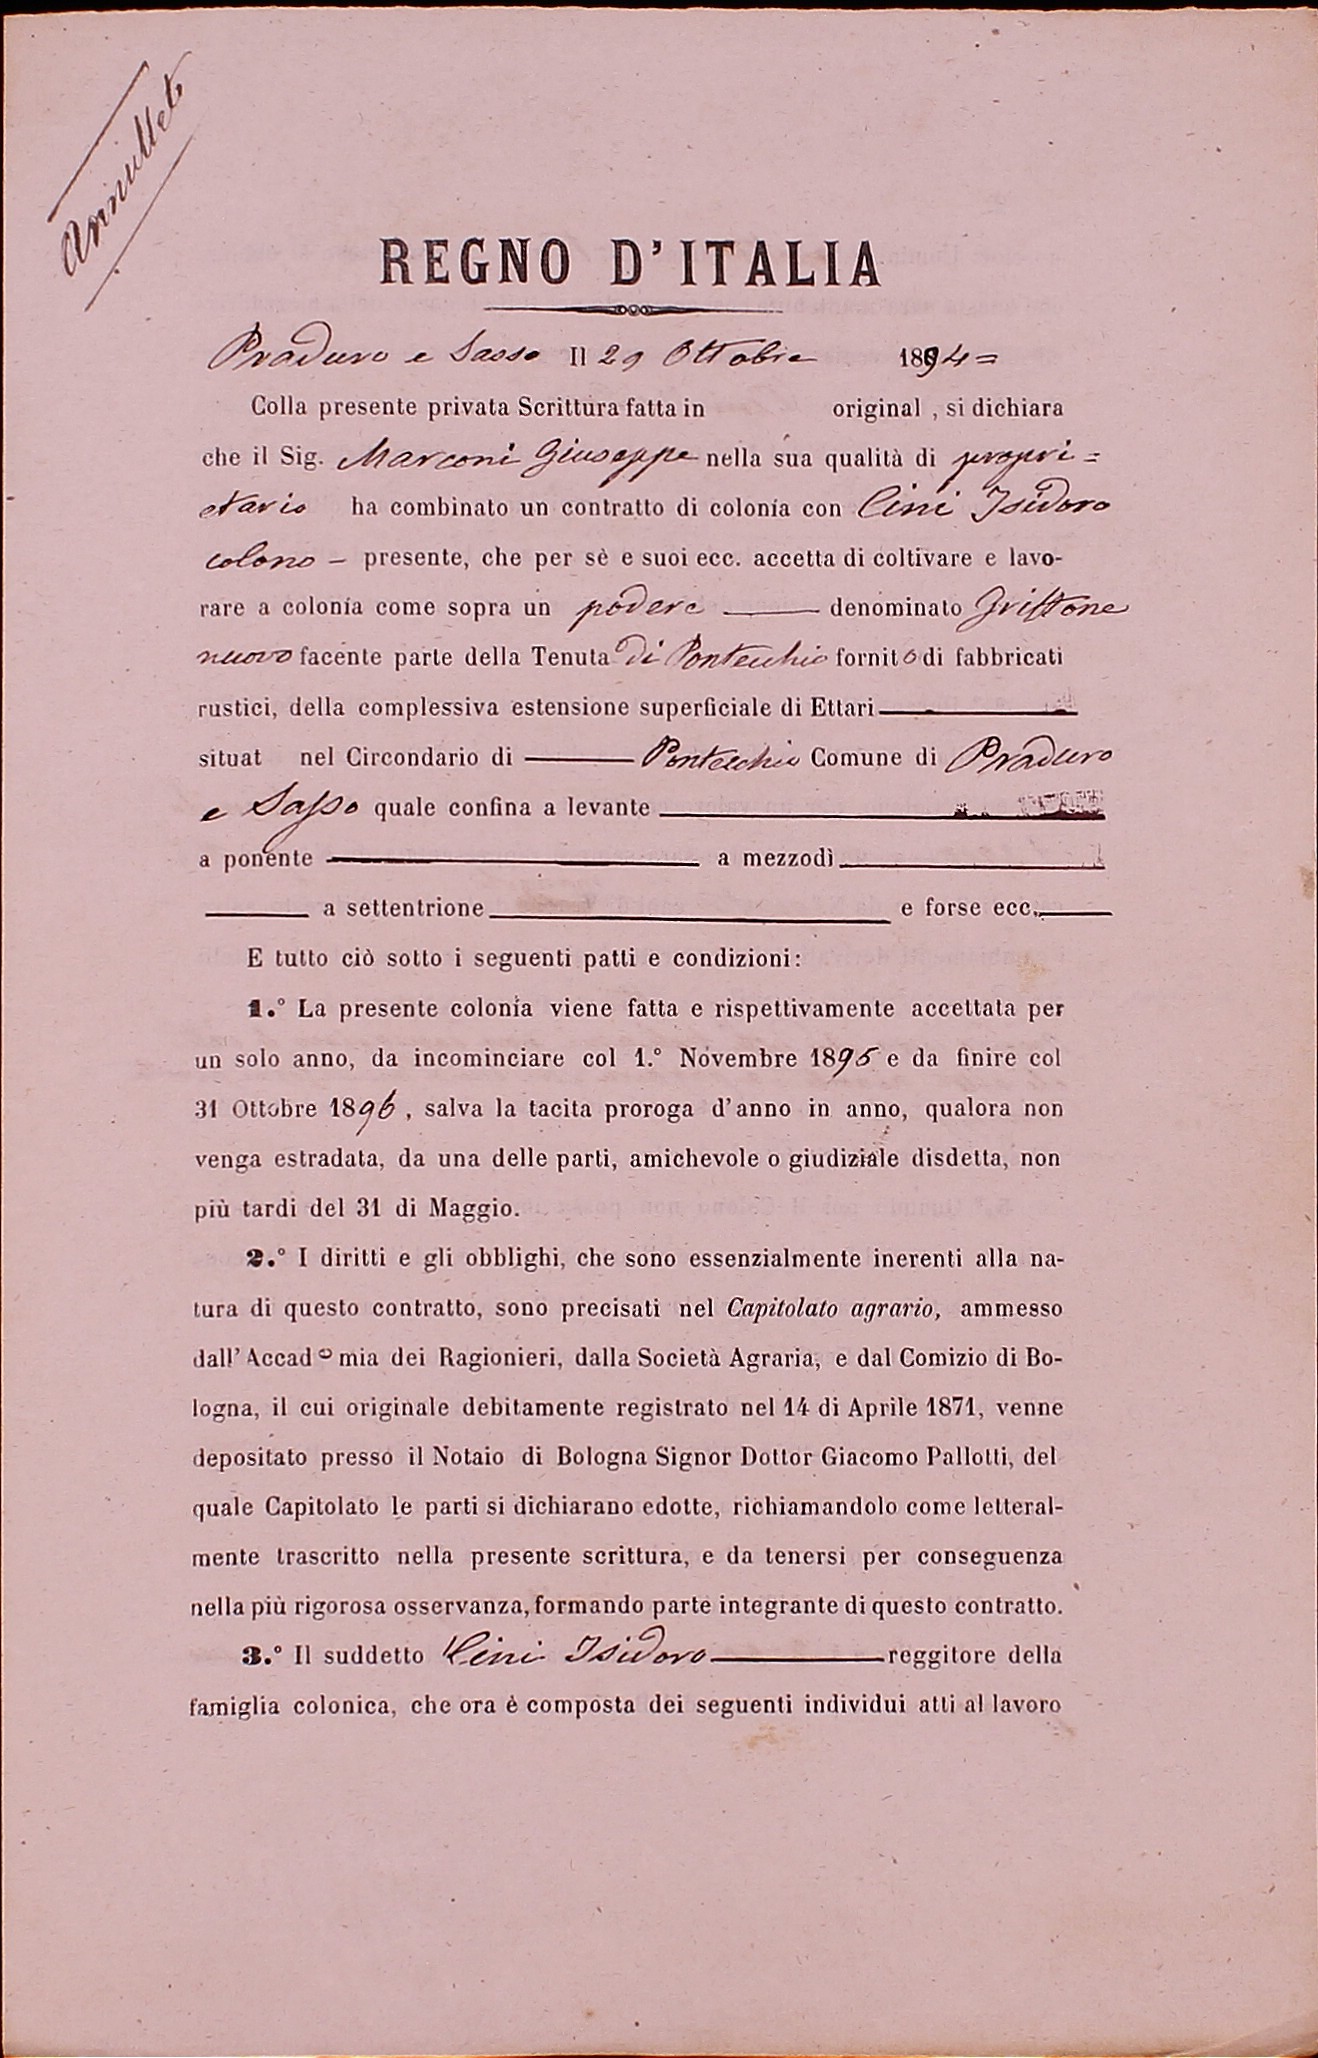 Annullato
REGNO D'ITALIA
Praduro e Sasso Il 29 Ottobre 1894=
Colla presente privata Scrittura fatta in original , si dichiara
che il Sig. Marconi Giuseppe nella sua qualità di propri=
etario ha combinato un contratto di colonía con Cini Isidoro
colono – presente, che per sè e suoi ecc. accetta di coltivare e lavo-
rare a colonía come sopra un podere denominato Griffone
nuovo facente parte della Tenuta di Pontecchio fornito di fabbricati
rustici, della complessiva estensione superficiale di Ettari
situat nel Circondario di Pontecchio Comune di Praduro
e Sasso quale confina a levante
a ponente a mezzodì
a settentrione e forse ecc.
E tutto ciò sotto i seguenti patti e condizioni:
1.° La presente colonía viene fatta e rispettivamente accettata per
un solo anno, da incominciare col 1.° Novembre 1895 e da finire col
31 Ottobre 1896, salva la tacita proroga d'anno in anno, qualora non
venga estradata, da una delle parti, amichevole o giudiziale disdetta, non
più tardi del 31 di Maggio.
2.° I diritti e gli obblighi, che sono essenzialmente inerenti alla na-
tura di questo contratto, sono precisati nel Capitolato agrario, ammesso
dall'Accademia dei Ragionieri, dalla Società Agraria, e dal Comizio di Bo-
logna, il cui originale debitamente registrato nel 14 di Aprile 1871, venne
depositato presso il Notaio di Bologna Signor Dottor Giacomo Pallotti, del
quale Capitolato le parti si dichiarano edotte, richiamandolo come letteral-
mente trascritto nella presente scrittura, e da tenersi per conseguenza
nella più rigorosa osservanza, formando parte integrante di questo contratto.
3.° Il suddetto Cini Isidoro reggitore della
famiglia colonica, che ora è composta dei seguenti individui atti al lavoro